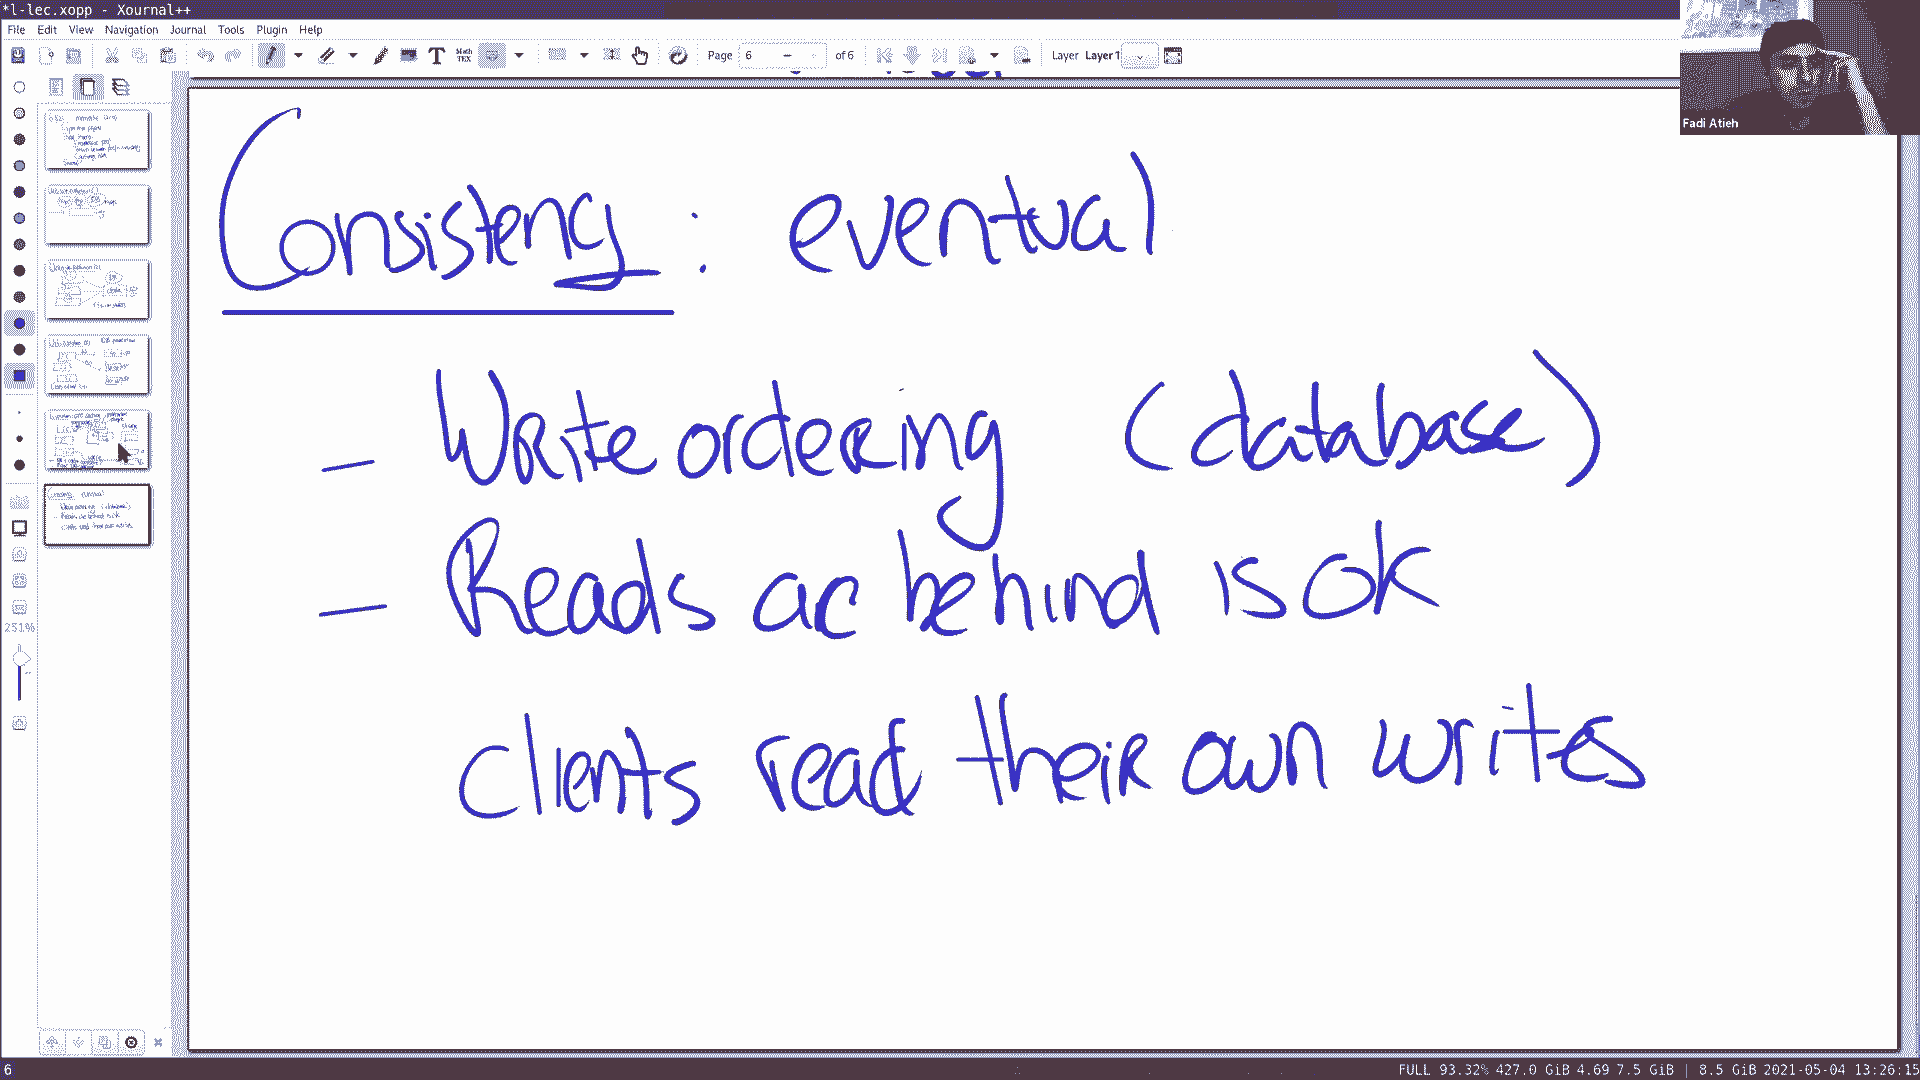 *l-lec.xopp - Xournal++
File Edit View Navigation Journal Tools Plugin Help
Page 6 of 6 Layer Layer1
Fadi Atieh
Consistency : eventual
— Write ordering (database)
— Reads are behind is ok
clients read their own writes
251%
6 FULL 93.32% 427.0 GiB 4.69 7.5 GiB | 8.5 GiB 2021-05-04 13:26:15